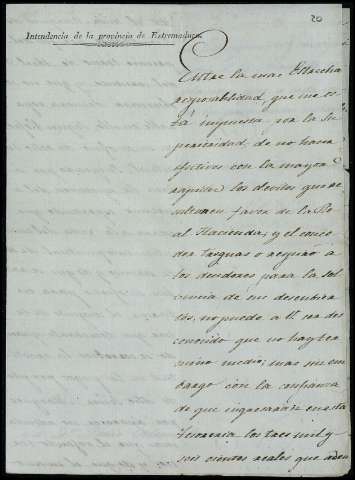 20
Intendencia de la provincia de Extremadura.
Entre la mas Estrecha
responsabilidad, que me es
tá impuesta por la Su
perioridad, de no hacer
efectivos con la mayor
rapidez los devitos que re
sultan en favor de la Re
al Hacienda; y el conce
der treguas o respiro á
los deudores para la sol
vencia de sus descubier
tos, no puede á V. ser des
conocido que no hay ter
mino medio; mas sin em
bargo con la confianza
de que ingresarán en esta
Tesoreria los tres mil y
seis cientos reales que adeu